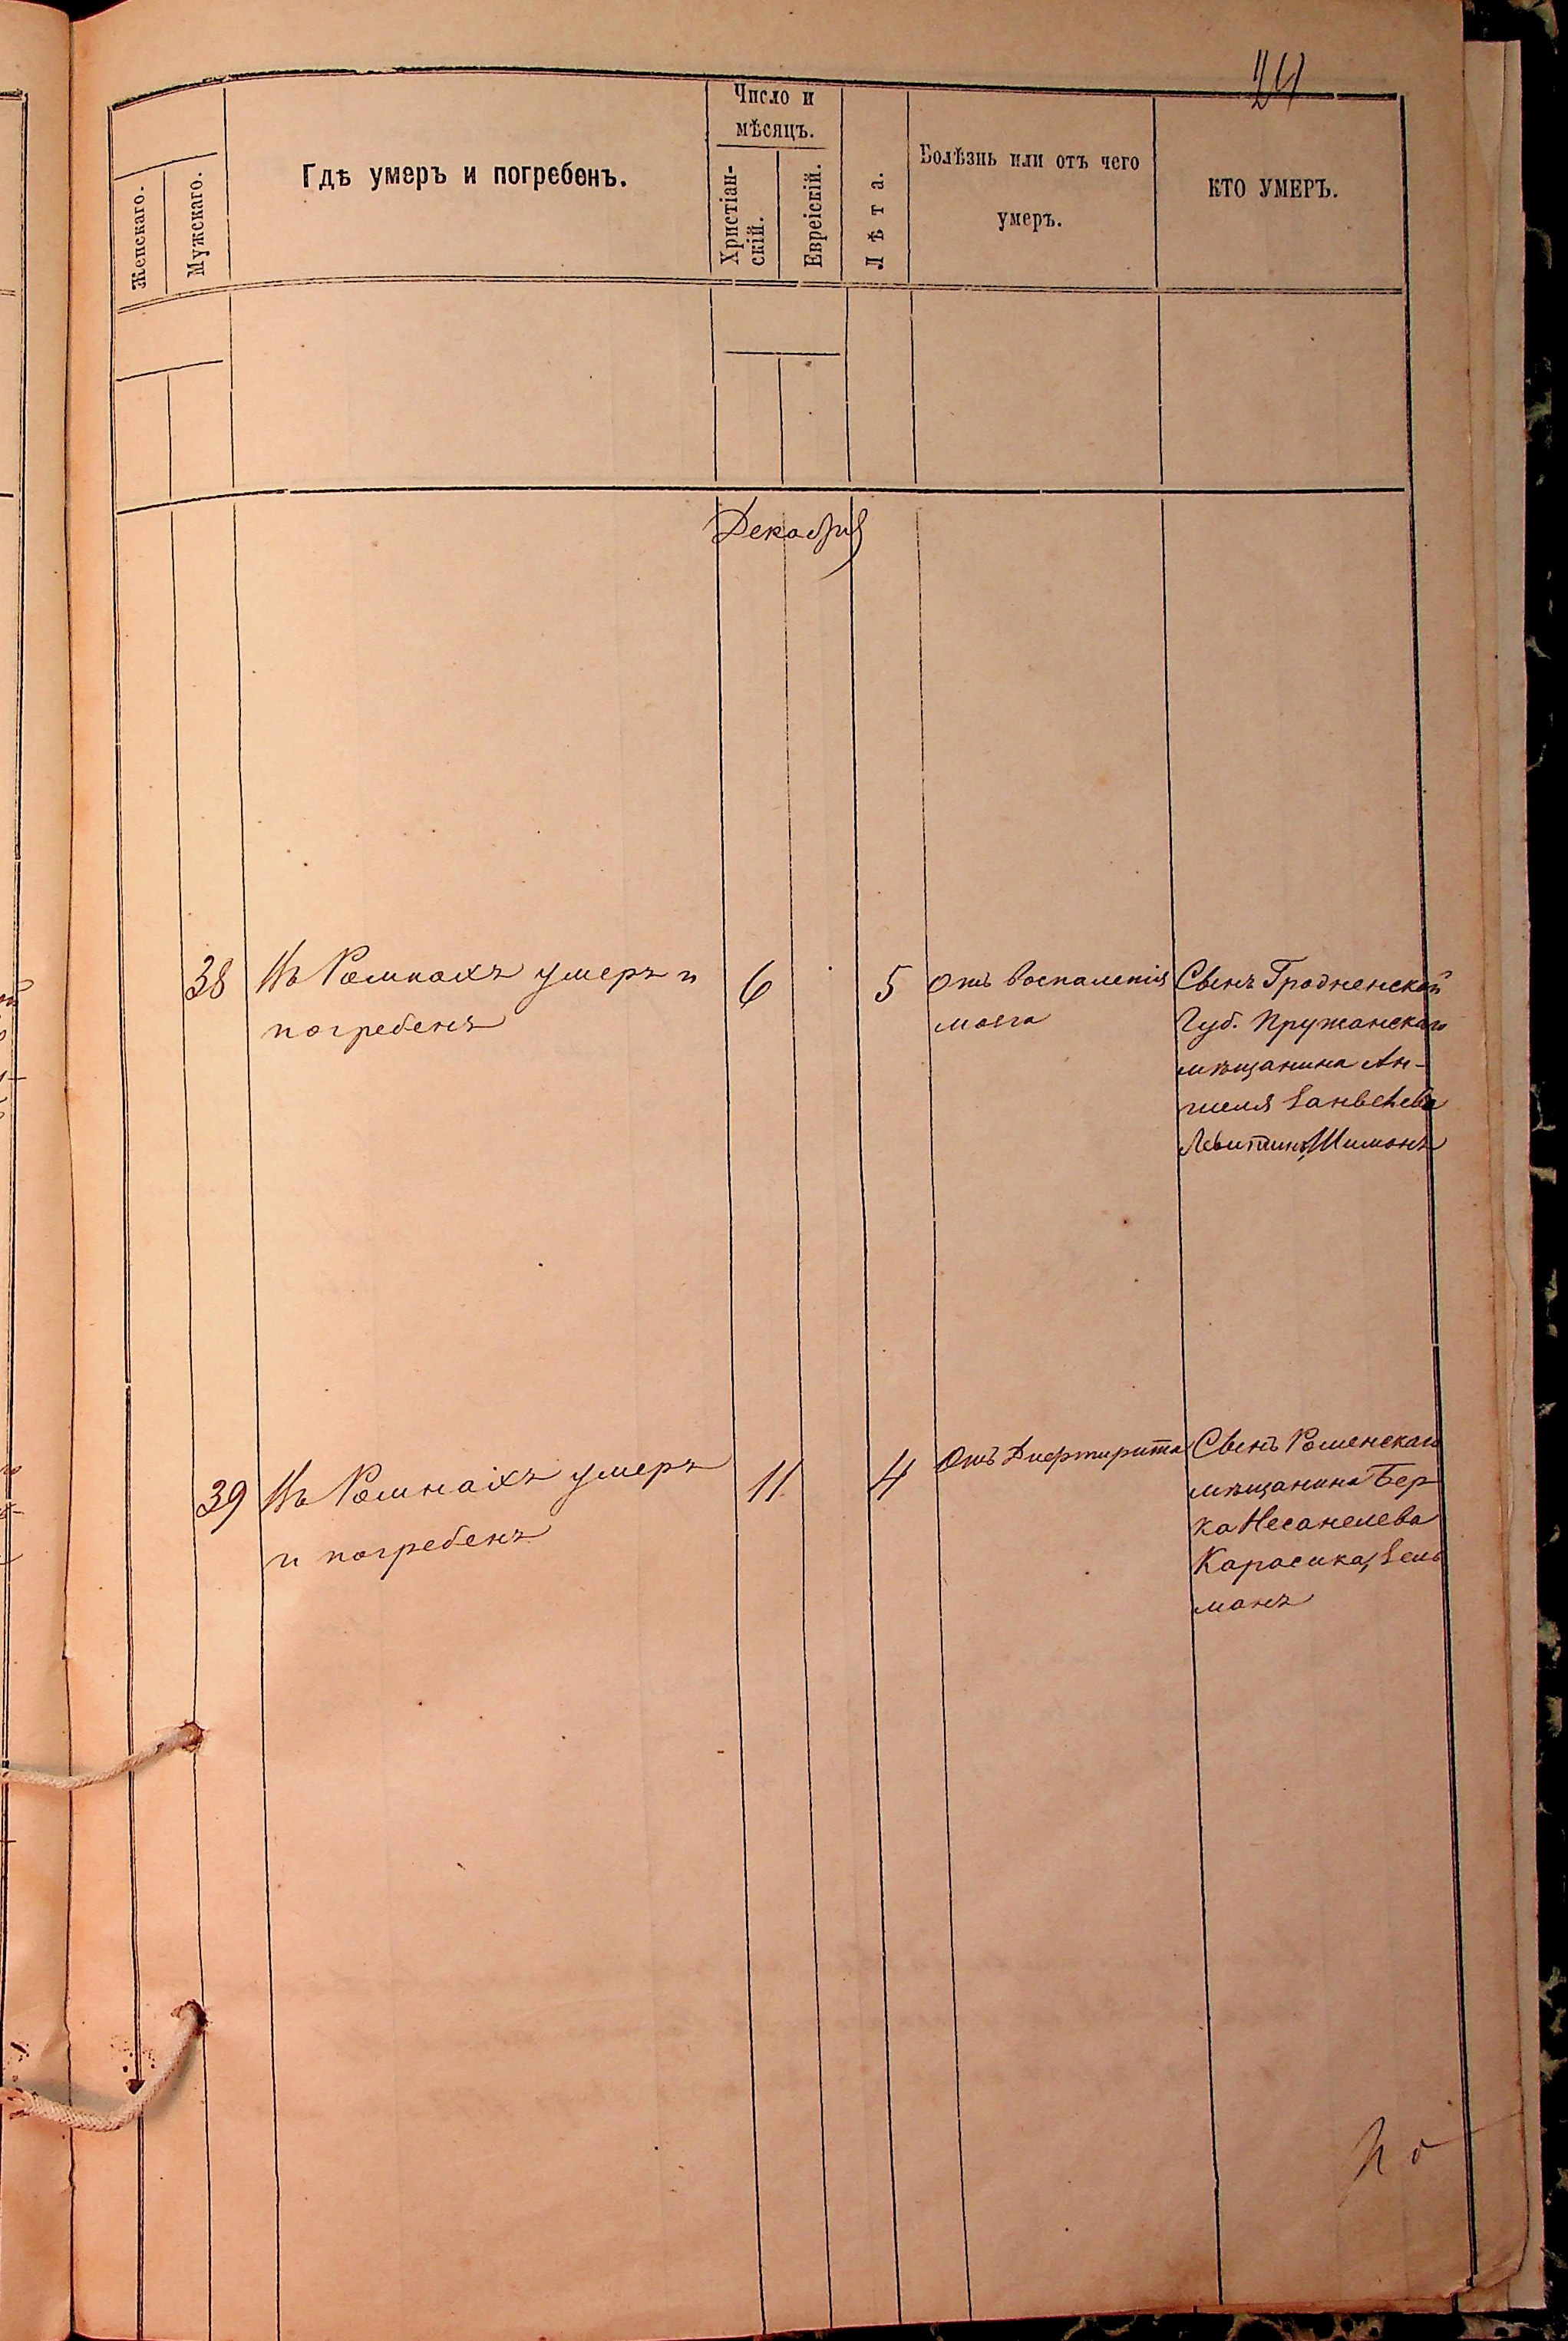 24
Женскаго.
Мужскаго.
Гдѣ умеръ и погребенъ.
Число и
мѣсяцъ.
Христіан-
скій.
Евреіскій.
Лѣта.
Болѣзнь или отъ чего
умеръ.
КТО УМЕРЪ.
Декабрь
38
Въ Ромнахъ умеръ и
погребенъ
6
5
отъ воспаленія
мозга
Сынъ Гродненской
Губ. Пружанскаго
мѣщанина Ан-
шеля Занвелева
Левитина, Шимонъ
39
Въ Ромнахъ умеръ
и погребенъ
11
4
Отъ Дифтирита
Сынъ Роменскаго
мѣщанина Бер
ка Несанелева
Карасика, Зель
манъ
По